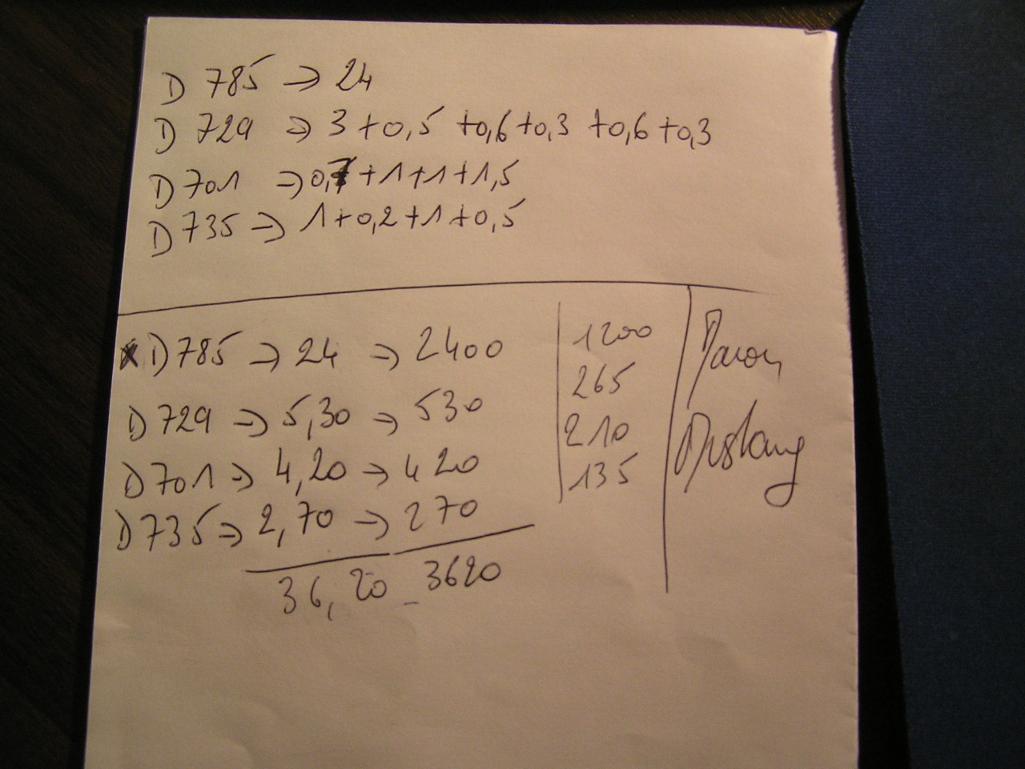 D 785 → 24
D 729 → 3 + 0,5 + 0,6 + 0,3 + 0,6 + 0,3
D 701 → 0,7 + 1 + 1 + 1,5
D 735 → 1 + 0,2 + 1 + 0,5
D 785 → 24 → 2400
D 729 → 5,30 → 530
D 701 → 4,20 → 420
D 735 → 2,70 → 270
36,20 3620
1200
265
210
135